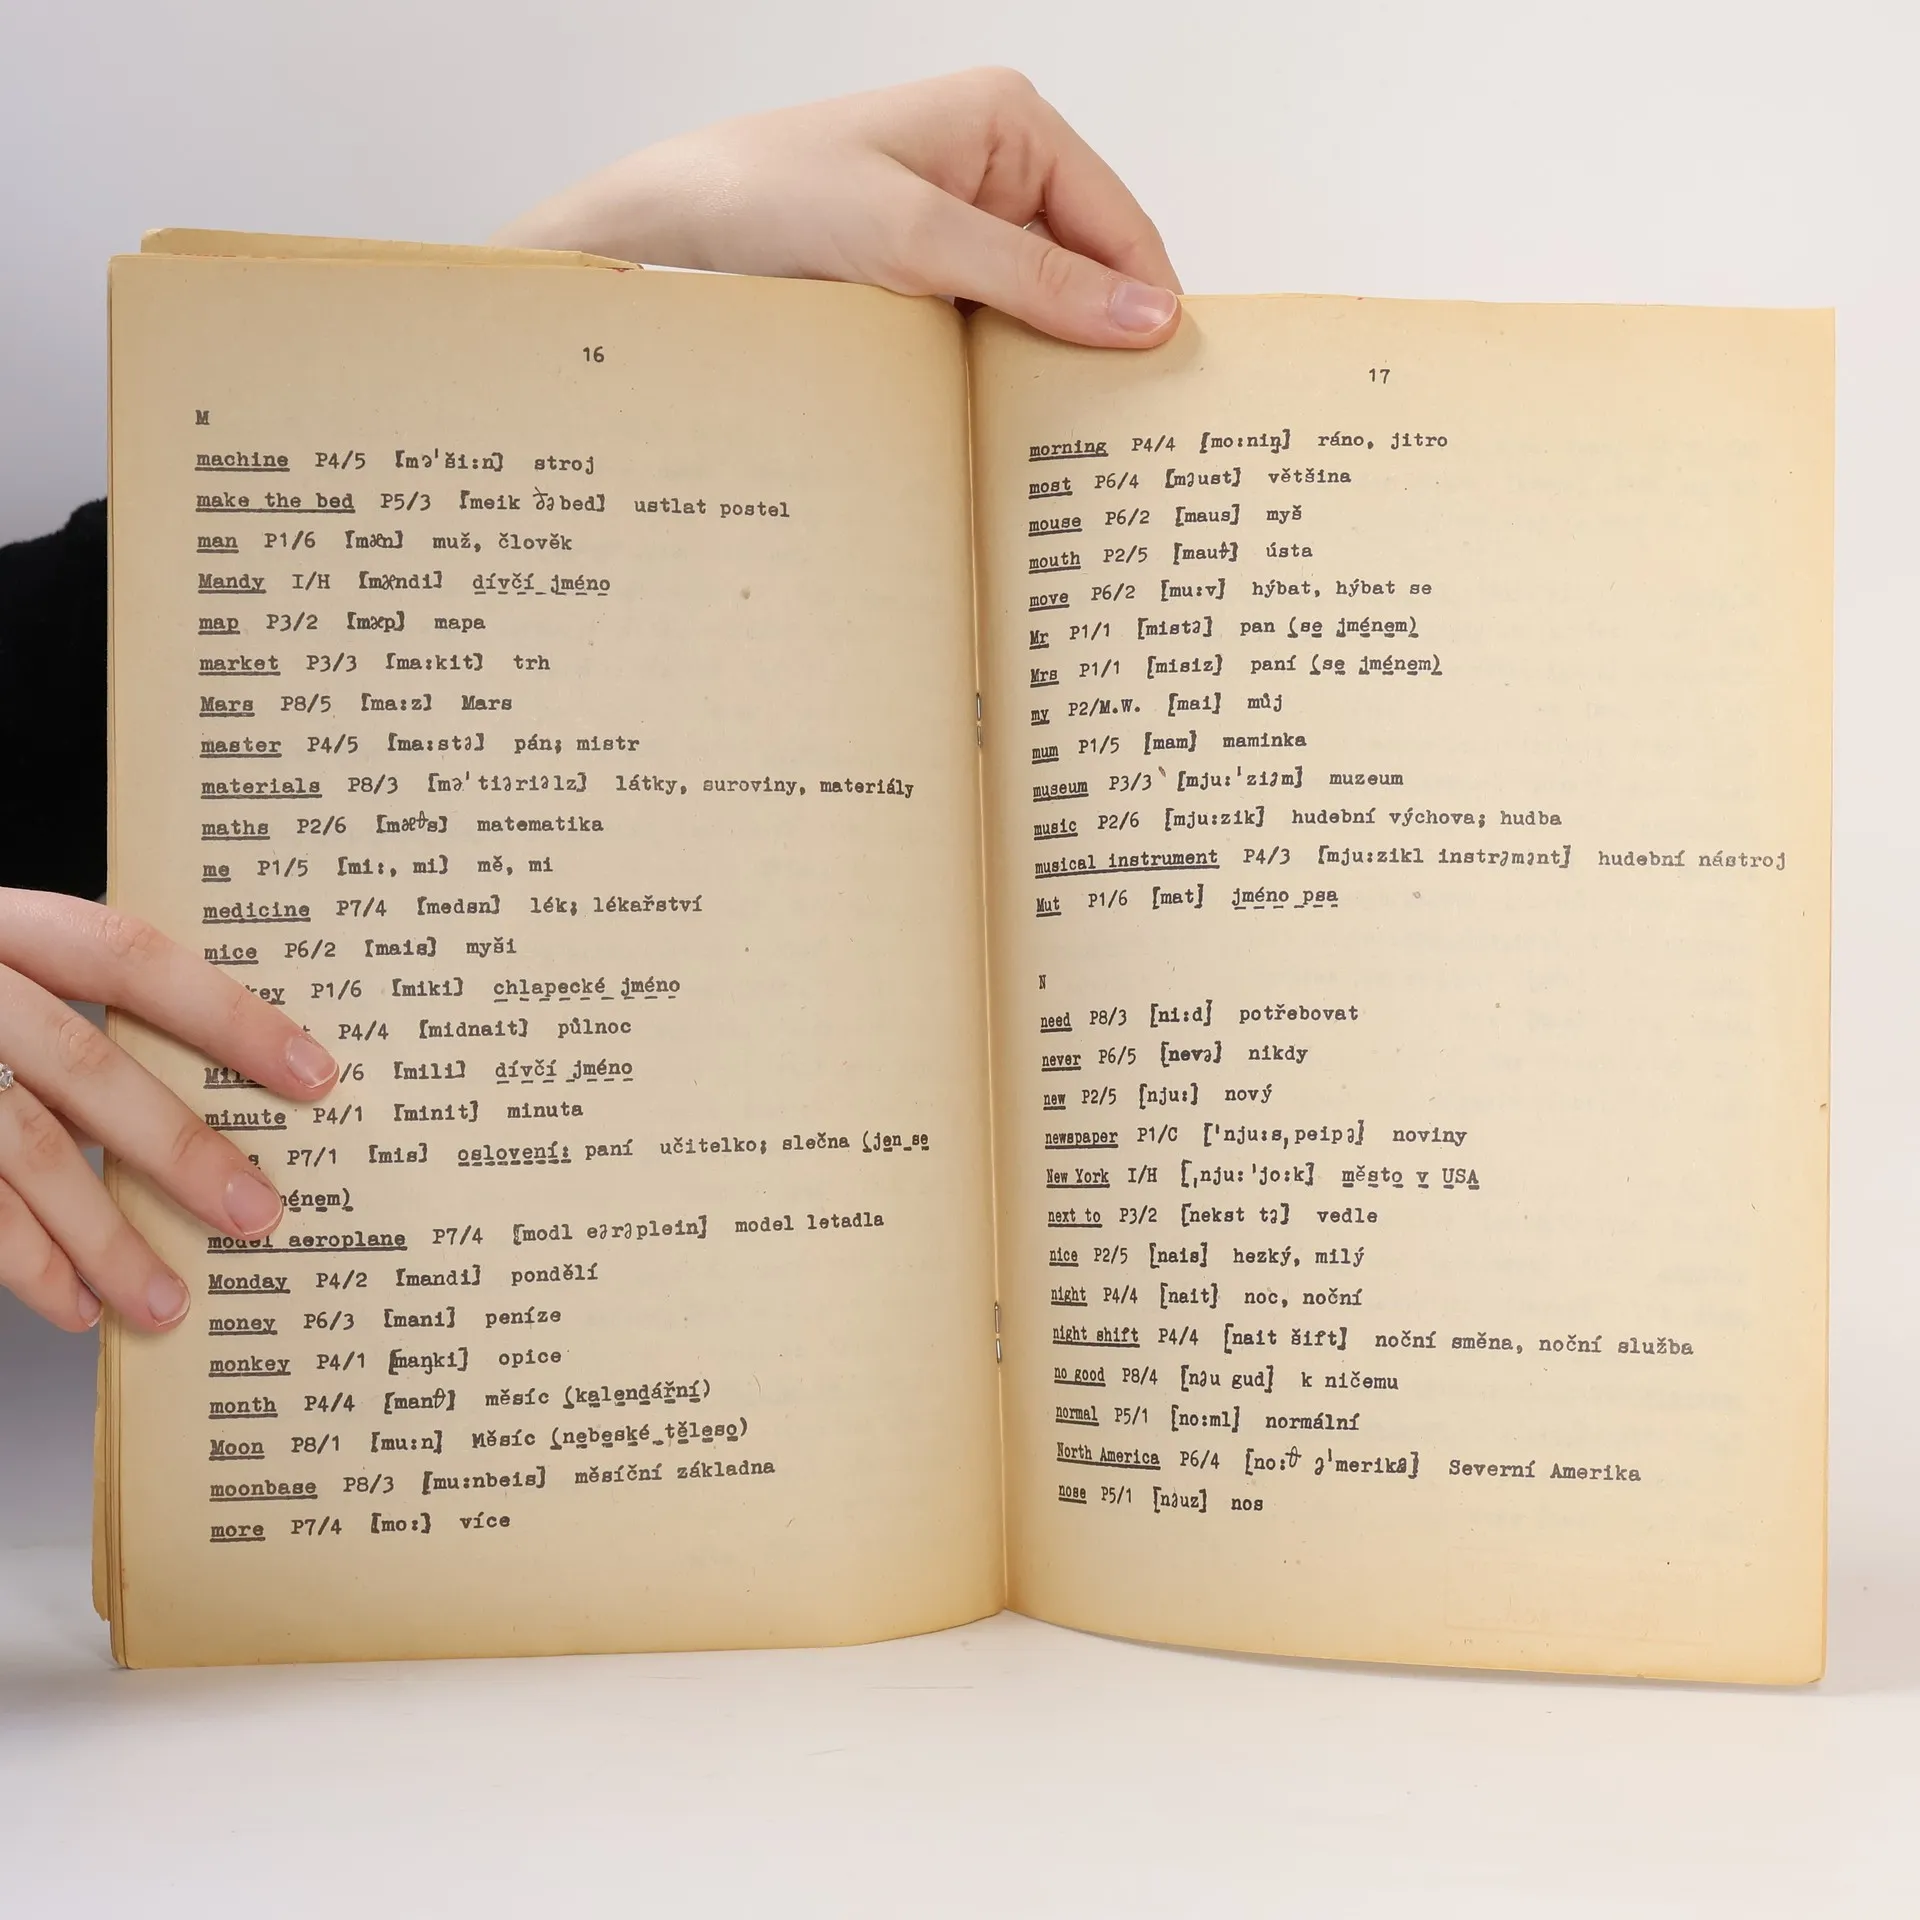 16
M
machine P4/5 [mə'ši:n] stroj
make the bed P5/3 [meik ðə bed] ustlat postel
man P1/6 [mæn] muž, člověk
Mandy I/H [mændi] dívčí jméno
map P3/2 [mæp] mapa
market P3/3 [ma:kit] trh
Mars P8/5 [ma:z] Mars
master P4/5 [ma:stə] pán; mistr
materials P8/3 [mə'tiəriəlz] látky, suroviny, materiály
maths P2/6 [mæθs] matematika
me P1/5 [mi:, mi] mě, mi
medicine P7/4 [medsn] lék; lékařství
mice P6/2 [mais] myši
P1/6 [miki] chlapecké jméno
P4/4 [midnait] půlnoc
/6 [mili] dívčí jméno
minute P4/1 [minit] minuta
P7/1 [mis] oslovení: paní učitelko; slečna (jen se
jménem)
model aeroplane P7/4 [modl eərəplein] model letadla
Monday P4/2 [mandi] pondělí
money P6/3 [mani] peníze
monkey P4/1 [maŋki] opice
month P4/4 [manθ] měsíc (kalendářní)
Moon P8/1 [mu:n] Měsíc (nebeské těleso)
moonbase P8/3 [mu:nbeis] měsíční základna
more P7/4 [mo:] více
17
morning P4/4 [mo:niŋ] ráno, jitro
most P6/4 [məust] většina
mouse P6/2 [maus] myš
mouth P2/5 [mauθ] ústa
move P6/2 [mu:v] hýbat, hýbat se
Mr P1/1 [mistə] pan (se jménem)
Mrs P1/1 [misiz] paní (se jménem)
my P2/M.W. [mai] můj
mum P1/5 [mam] maminka
museum P3/3 [mju:'ziəm] muzeum
music P2/6 [mju:zik] hudební výchova; hudba
musical instrument P4/3 [mju:zikl instrəmənt] hudební nástroj
Mut P1/6 [mat] jméno psa
N
need P8/3 [ni:d] potřebovat
never P6/5 [nevə] nikdy
new P2/5 [nju:] nový
newspaper P1/C ['nju:s,peipə] noviny
New York I/H [,nju:'jo:k] město v USA
next to P3/2 [nekst tə] vedle
nice P2/5 [nais] hezký, milý
night P4/4 [nait] noc, noční
night shift P4/4 [nait šift] noční směna, noční služba
no good P8/4 [nəu gud] k ničemu
normal P5/1 [no:ml] normální
North America P6/4 [no:θ ə'merikə] Severní Amerika
nose P5/1 [nəuz] nos